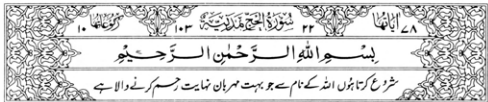 اٰیَاتُهَا ۷۸ ۲۲ سُوْرَةُ الْحَجِّ مَدَنِيَّةٌ ۱۰۳ رُكُوْعَاتُهَا ۱۰
بِسْمِ اللهِ الرَّحْمٰنِ الرَّحِيْمِ
شروع کرتا ہوں اللہ کے نام سے جو بہت مہربان نہایت رحم کرنے والا ہے